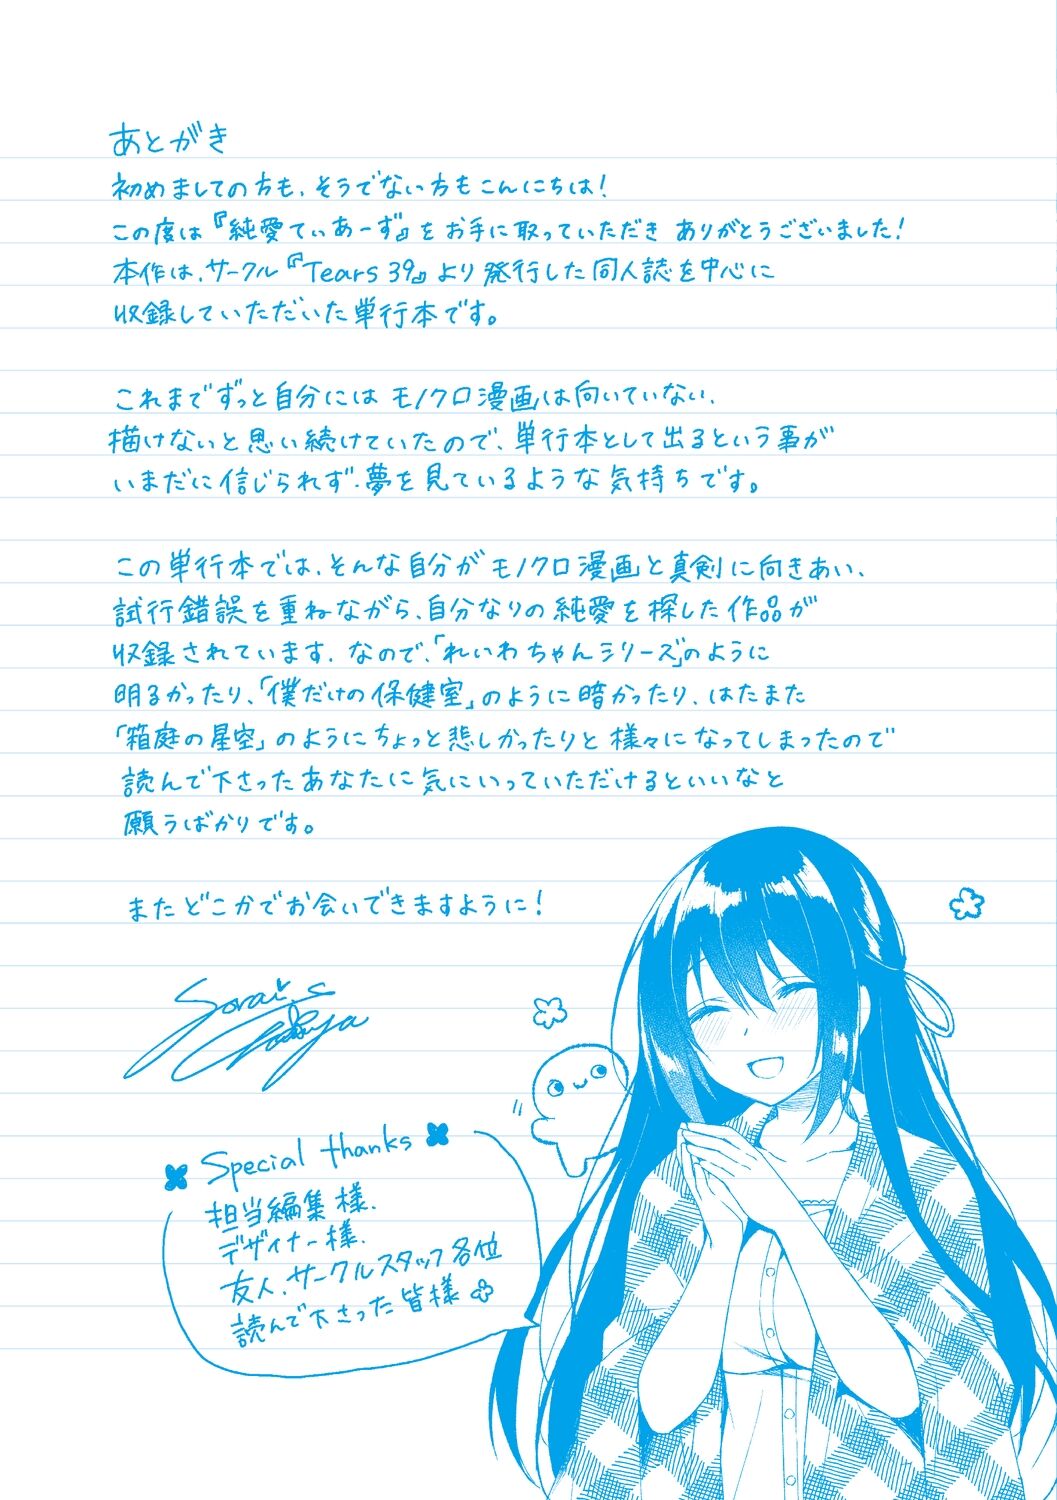 あとがき
初めましての方も、そうでない方もこんにちは!
この度は『純愛てぃあーず』をお手に取っていただき ありがとうございました!
本作は、サークル『Tears 39』より発行した同人誌を中心に
収録していただいた単行本です。
これまでずっと自分には モノクロ漫画は向いていない、
描けないと思い続けていたので、単行本として出るという事が
いまだに信じられず、夢を見ているような気持ちです。
この単行本では、そんな自分がモノクロ漫画と真剣に向きあい、
試行錯誤を重ねながら、自分なりの純愛を探した作品が
収録されています。なので、「れいわちゃんシリーズ」のように
明るかったり、「僕だけの保健室」のように暗かったり、はたまた
「箱庭の星空」のようにちょっと悲しかったりと様々になってしまったので
読んで下さったあなたに気にいっていただけるといいなと
願うばかりです。
またどこかでお会いできますように!
Special thanks
担当編集様、
デザイナー様、
友人、サークルスタッフ各位
読んで下さった皆様